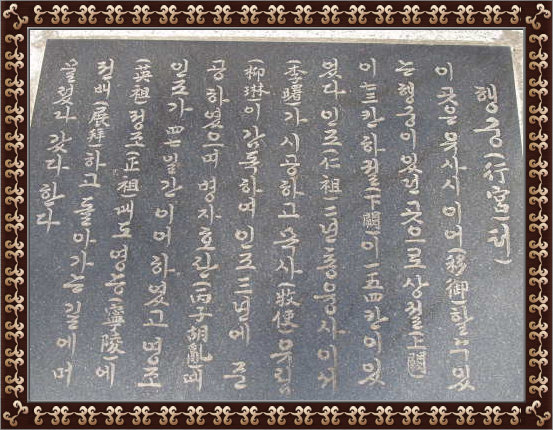 행궁(行宮)터
이곳은 유사시 이어(移御)할 수 있
는 행궁이 있던 곳으로 상궐(上闕)
이 七三칸 하궐(下闕)이 一五四칸이 있
었다 인조(仁祖) 二년 총융사 이서
(李曙)가 시공하고 목사(牧使)유림
(柳琳)이 감독하여 인조 三년에 준
공하였으며 병자호란(丙子胡亂)때
인조가 四七일간 이어하였고 영조
(英祖) 정조(正祖)때도 영릉(寧陵)에
전배(展拜)하고 돌아가는 길에 머
물렀다 갔다 한다